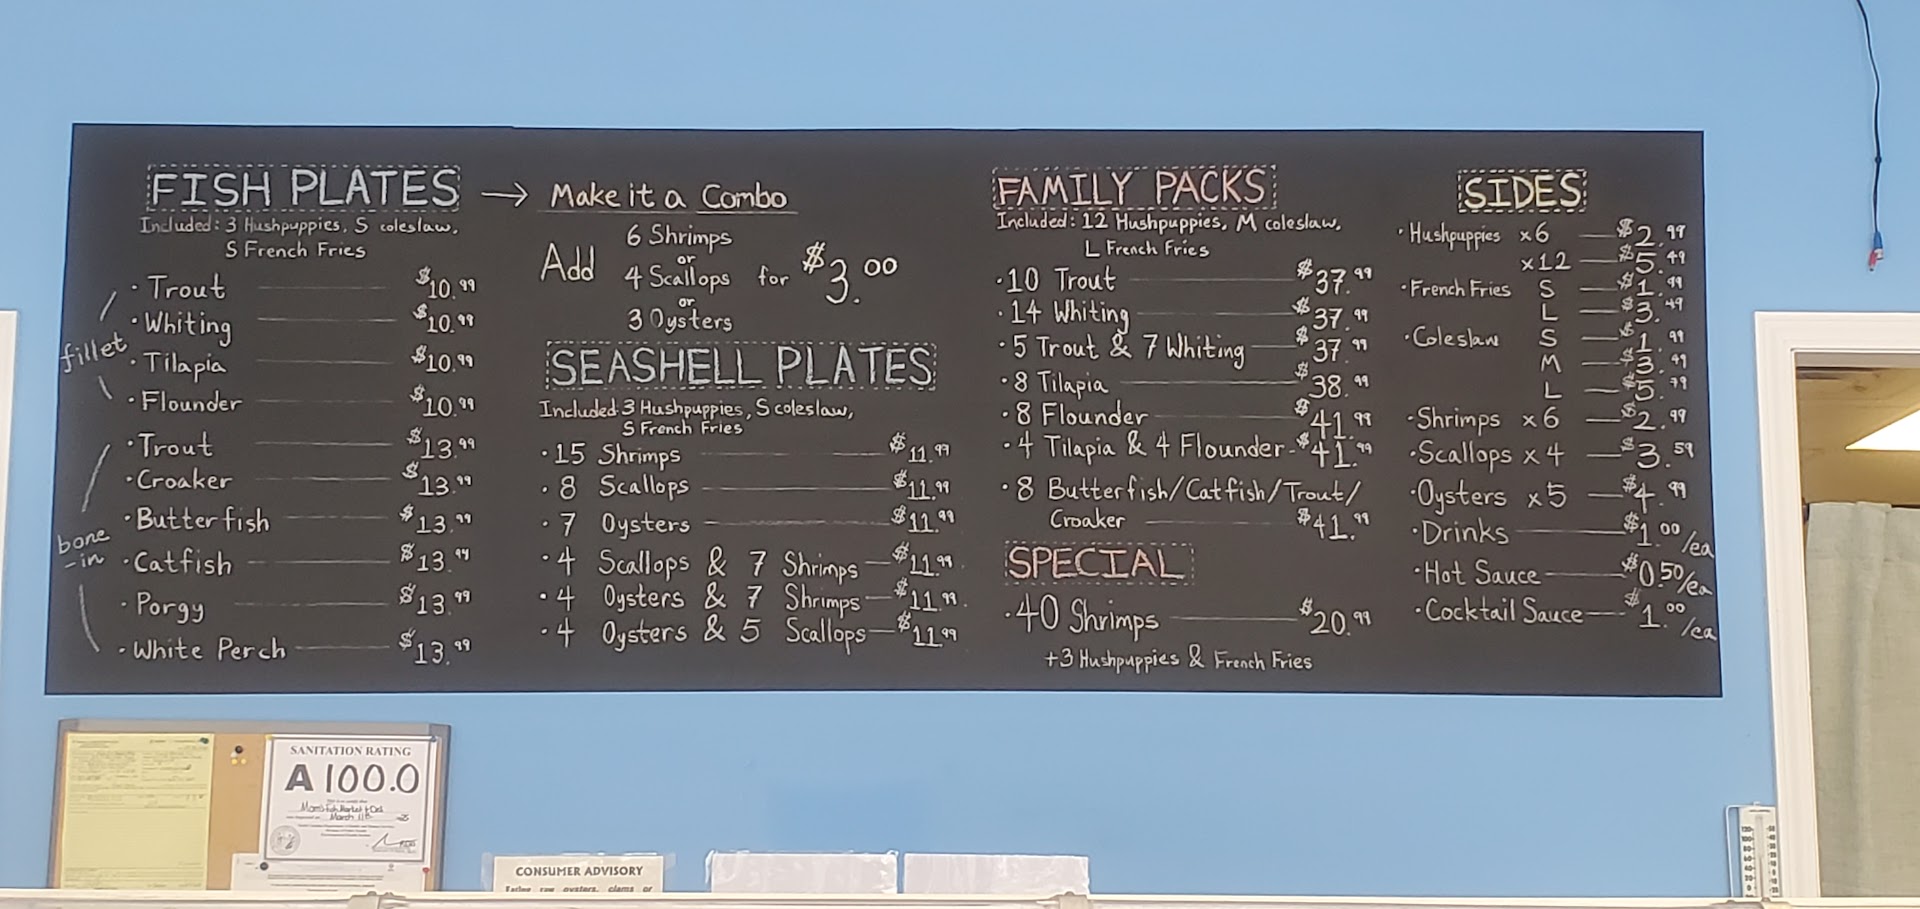 FISH PLATES → Make it a Combo
Included: 3 Hushpuppies, S coleslaw,
S French Fries
fillet
· Trout $10.99
· Whiting $10.99
· Tilapia $10.99
· Flounder $10.99
bone
-in
· Trout $13.99
· Croaker $13.99
· Butterfish $13.99
· Catfish $13.99
· Porgy $13.99
· White Perch $13.99
Add
6 Shrimps
or
4 Scallops for $3.00
or
3 Oysters
SEASHELL PLATES
Included: 3 Hushpuppies, S coleslaw,
S French Fries
· 15 Shrimps $11.99
· 8 Scallops $11.99
· 7 Oysters $11.99
· 4 Scallops & 7 Shrimps $11.99
· 4 Oysters & 7 Shrimps $11.99
· 4 Oysters & 5 Scallops $11.99
FAMILY PACKS
Included: 12 Hushpuppies, M coleslaw,
L French Fries
· 10 Trout $37.99
· 14 Whiting $37.99
· 5 Trout & 7 Whiting $37.99
· 8 Tilapia $38.99
· 8 Flounder $41.99
· 4 Tilapia & 4 Flounder $41.99
· 8 Butterfish/Catfish/Trout/
Croaker $41.99
SPECIAL
· 40 Shrimps $20.99
+3 Hushpuppies & French Fries
SIDES
· Hushpuppies x6 $2.99
x12 $5.49
· French Fries S $1.99
L $3.49
· Coleslaw S $1.99
M $3.49
L $5.79
· Shrimps x6 $2.99
· Scallops x4 $3.59
· Oysters x5 $4.99
· Drinks $1.00/ea
· Hot Sauce $0.50/ea
· Cocktail Sauce $1.00/ea
SANITATION RATING
A 100.0
Mom's Fish Market &
March 11th
CONSUMER ADVISORY
Eating raw oysters, clams or